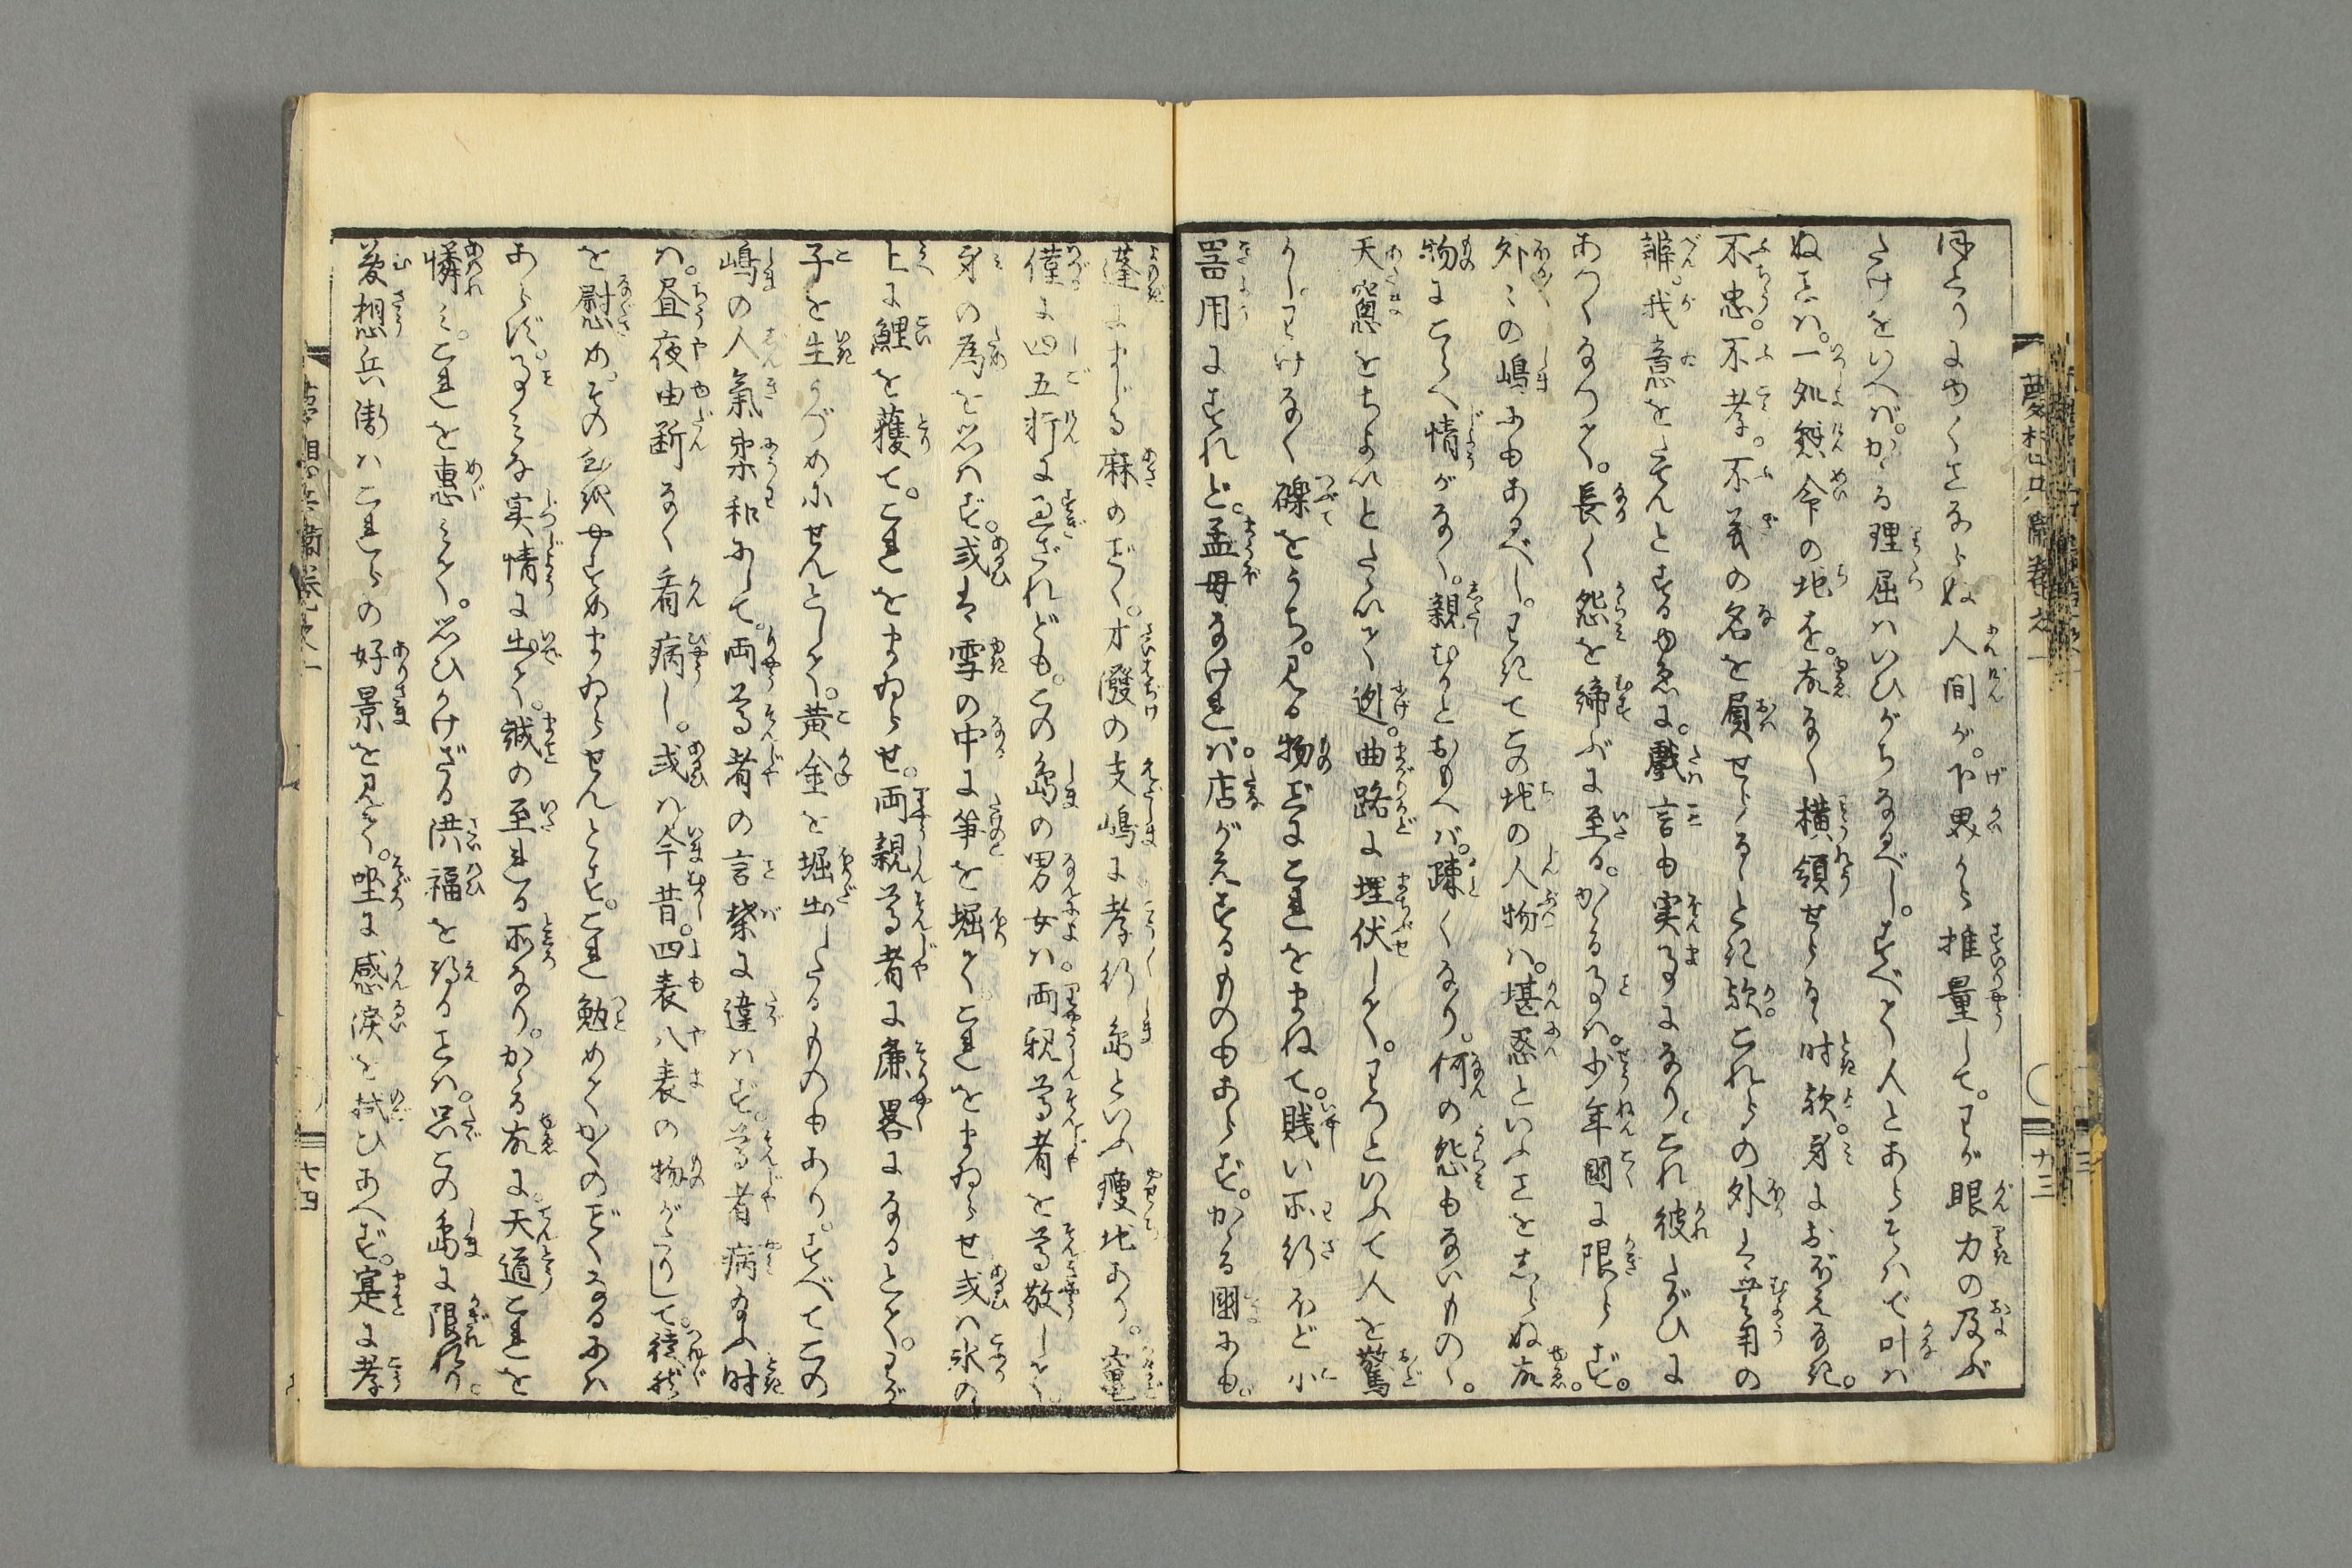 夢想兵衛巻之一
ぬ人間が。下界から推量して。わが眼力の及ぶ
たけをいへば。かゝる理屈はいひがちなるべし。すべて人とあらそはで叶は
ぬことは。一処懸命の地を。故なく横領せらるゝ時歟。身におぼえなき。
不忠。不孝。不義の名を負せらるゝとき歟。これらの外は無用の
辨。我意をたてんとするゆゑに。戲言も実事になり。これ彼たがひに
あつくなつて。長く怨を締ぶに至る。かゝる事は。少年國に限らず。
外々の嶋にもあるべし。わきてこの地の人物は。堪忍といふことをしらぬ故。
物にこらへ情がなく。親むかとおもへば。疎くなり。何の怨もないものゝ。
天窓をちよいとたゝいて迯。曲路に埋伏して。わつといふて人を驚
かし。わけなく礫をうち。見る物ごとにこれをまねて。賎い所行ほど小
器用にすれど。孟母なければ。店がえするものもあらず。かゝる國にも。
蓬にまじる麻のごく。才溌の支嶋に孝行島といふ瘦地あり。
僅に四五軒に過ざれども。この島の男女は。両親尊者を尊敬して。
身の為を思はず。或は雪の中に笋を堀てこれをまゐらせ或は氷の
上に鯉を獲て。これをまゐらせ。両親尊者に麁畧になるとて。わが
子を生うづめにせんとして。黄金を堀出したるものもあり。すべてこの
嶋の人氣柔和にして。両尊者の言葉に違はず。尊者病あふ時
は。昼夜由断なく看病し。或は今昔。四表八表の物がたりして。徒然
を慰め。その心を休すめまゐらせんとす。これ勉めてかくのごくなるには
あらず。事みな実情に出て。誠の至れる所なり。かゝる故に。天道これを
憐み。これを惠みて。思ひがけざる洪福を得ることは。只この島に限れり。
夢想兵衛はこれらの好景を見て。坐に感涙を拭ひあへず。寔に孝
夢想兵衛巻之一
十三
七四